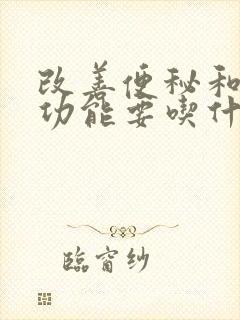 改善便秘和
功能要喫什
臨窗紗